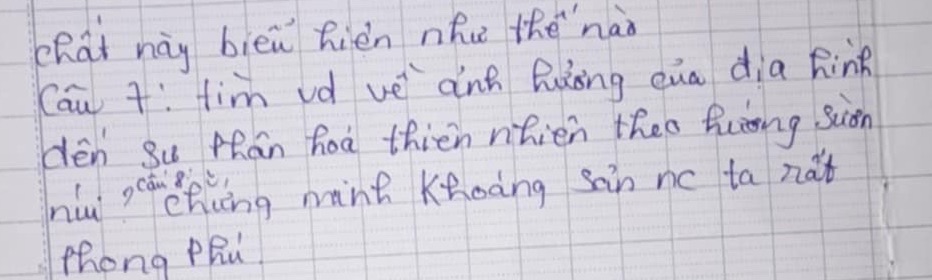 chất này biểu hiện như thế nào
Câu 7: tìm vd về ảnh hưởng của địa hình
đến sự phân hoá thiên nhiên theo hướng sườn
núi? câu 8: chứng minh khoáng sản nc ta rất
phong phú